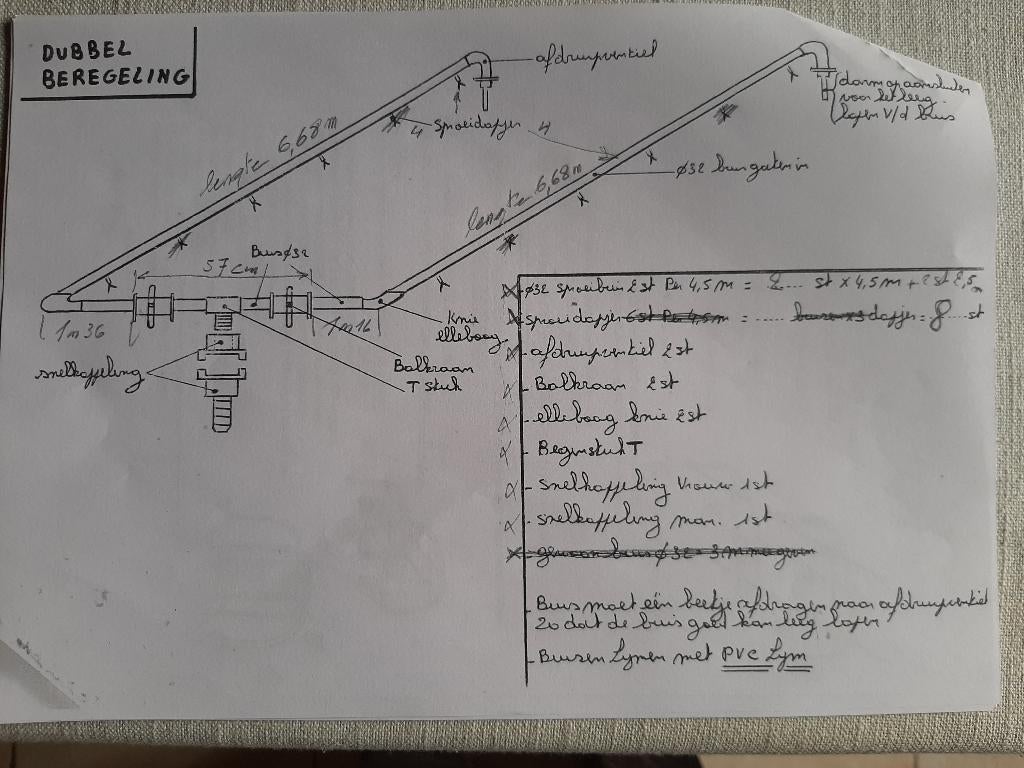 DUBBEL
BEREGELING
afdruipventiel
darm opaansluiten
voor het leeg
lopen v/d buis
4 Sproeidopjes 4
lengte 6,68 m
lengte 6,68 m
ø32 buis gaten in
Buis ø32
57 cm
1m36
1m16
Knie
elleboog
snelkoppeling
Balkraan
T stuk
ø32 sproeibuis 2st Per 4,5 m = 2.... st x 4,5 m + 2 st 2,5 m
sproeidopjes 6 st Per 4,5 m = ..... buizen x3 dopjes = 8 ... st
- afdruipventiel 2st
- Balkraan 2st
- elleboog knie 2st
- Beginstuk T
- snelkoppeling Vrouw 1st
- snelkoppeling man. 1st
buis ø 32 = 3 m
- Buis moet één beetje afdragen naar afdruipventiel
zo dat de buis goed kan leeg lopen
- Buisen Lymen met PVC Lym